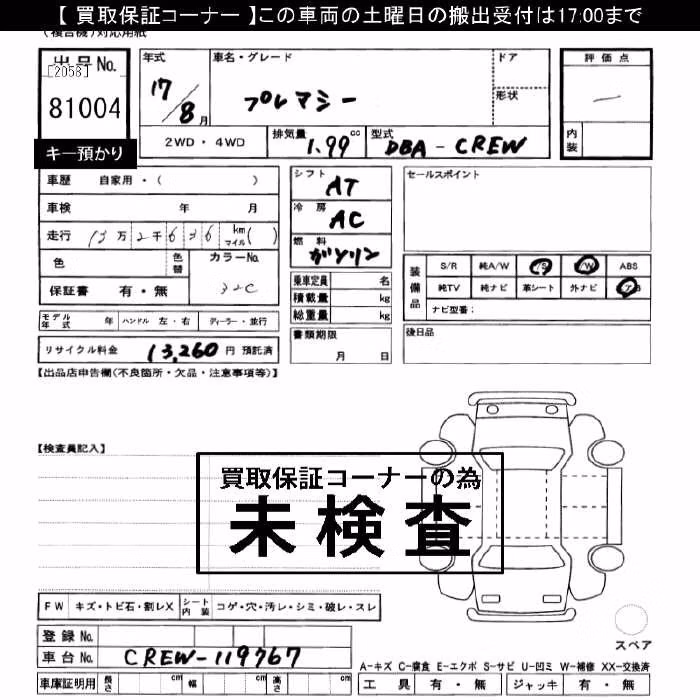 【 買取保証コーナー 】この車両の土曜日の搬出受付は17:00まで
(複合機)対応用紙
出品No.
[2058]
81004
キー預かり
年式
17/8月
車名・グレード
プレマシー
ドア
形状
2WD・4WD
排気量 1.99 cc
型式 DBA-CREW
評価点
内装
車歴 自家用・( )
車検 年 月
走行 13万2千636 km マイル( )
色
色替
カラーNo.
32C
保証書 有・無
シフト AT
冷房 AC
燃料 ガソリン
乗車定員 名
積載量 kg
総重量 kg
セールスポイント
装備品
S/R 純A/W P/S P/W ABS
純TV 純ナビ 革シート 外ナビ A/B
ナビ型番:
モデル年式 年 ハンドル 左・右 ディーラー・並行
書類期限
月 日
後日品
リサイクル料金 13,260 円 預託済
【出品店申告欄(不良箇所・欠品・注意事項等)】
【検査員記入】
買取保証コーナーの為
未検査
FW キズ・トビ石・割レX シート内装 コゲ・穴・汚レ・シミ・破レ・スレ
スペア
登録No.
車台No. CREW-119767
A-キズ C-腐食 E-エクボ S-サビ U-凹ミ W-補修 XX-交換済
車庫証明用 長さ cm 幅 cm 高さ cm
工具 有・無 ジャッキ 有・無